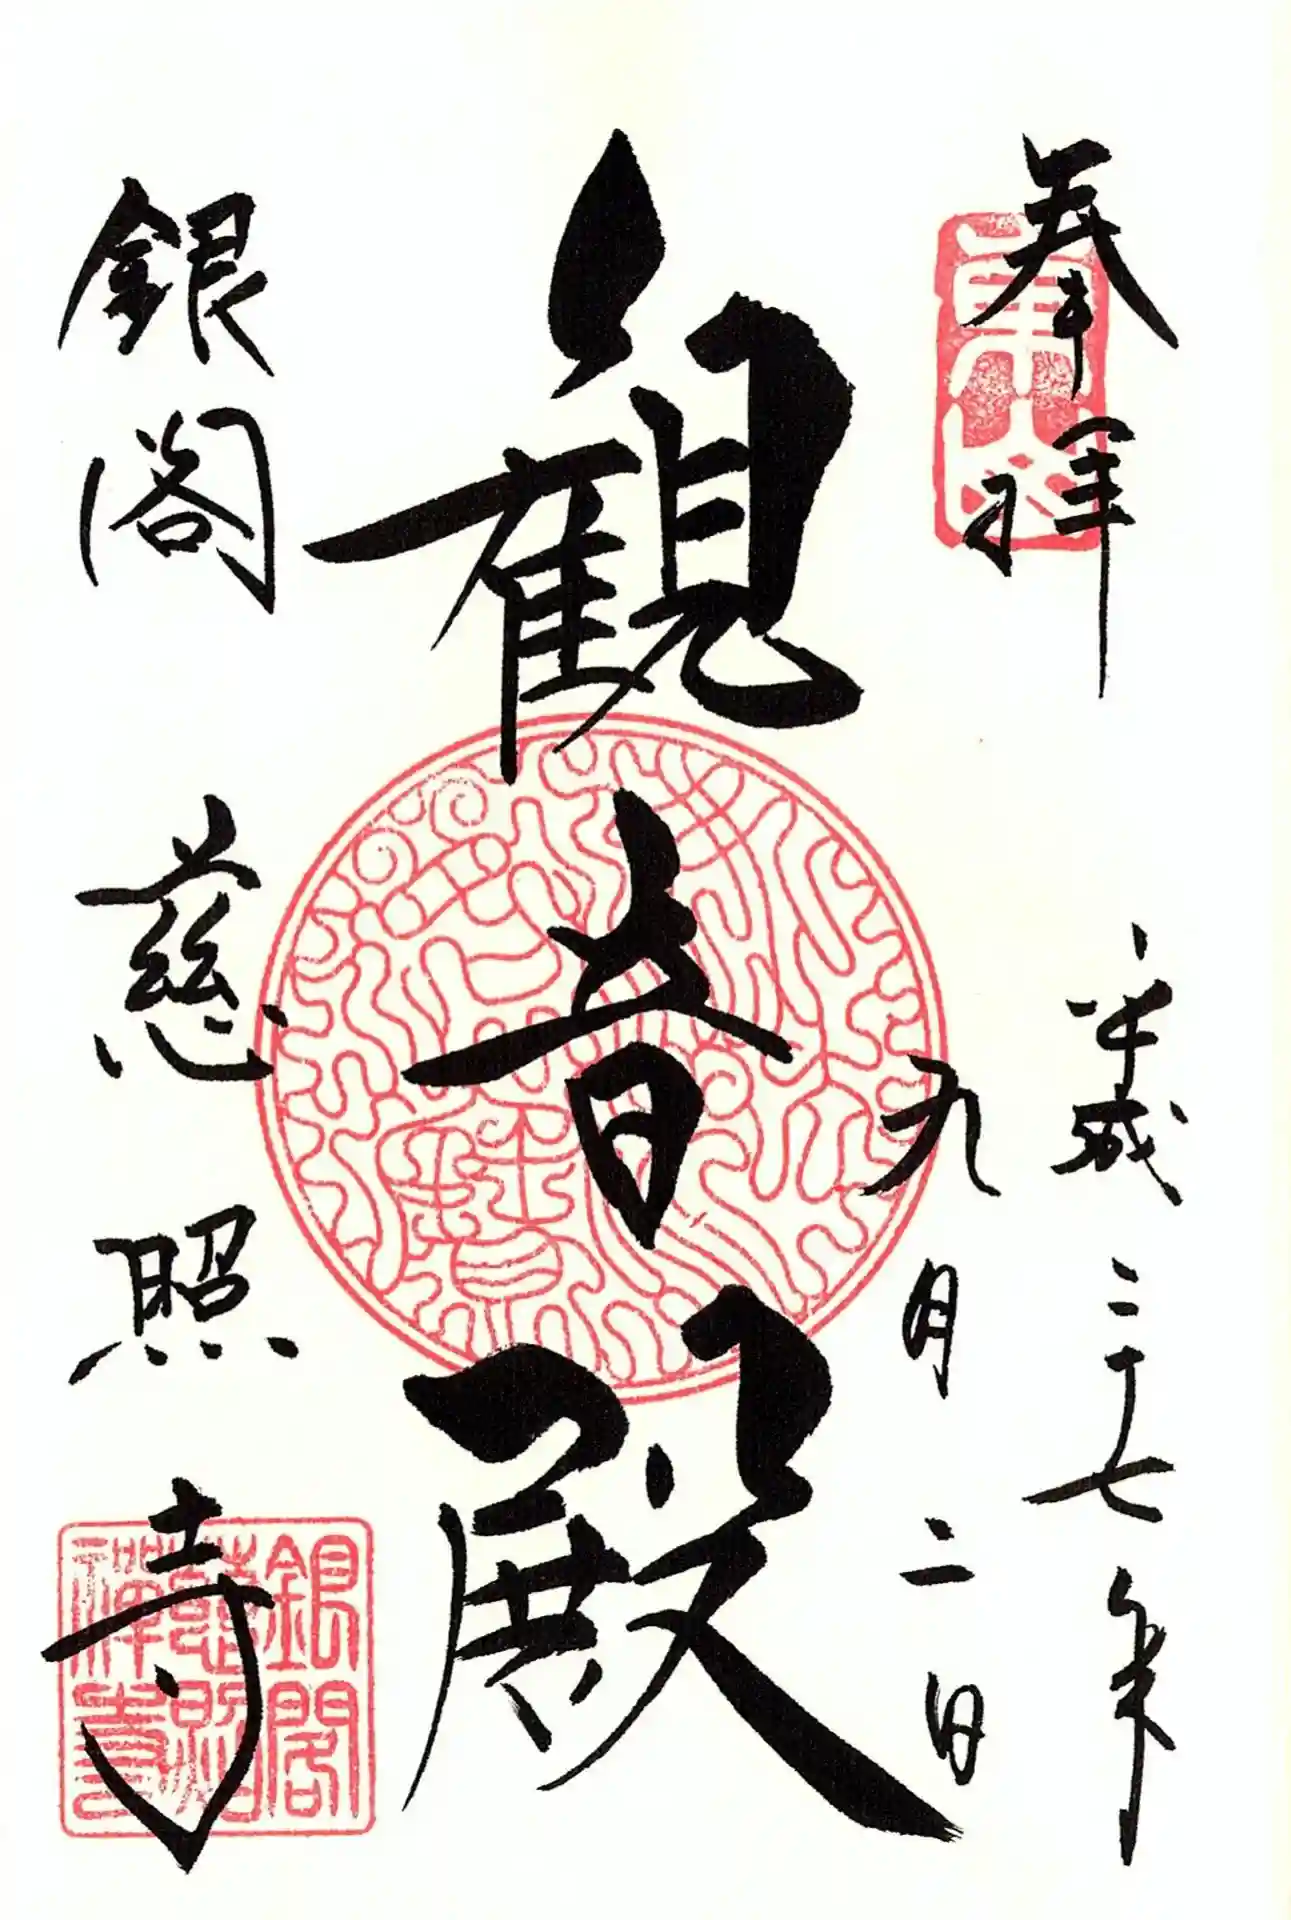 奉拝
平成二十七年
九月二日
觀音殿
銀閣
慈照寺
東山
銀閣
慈照
禅寺